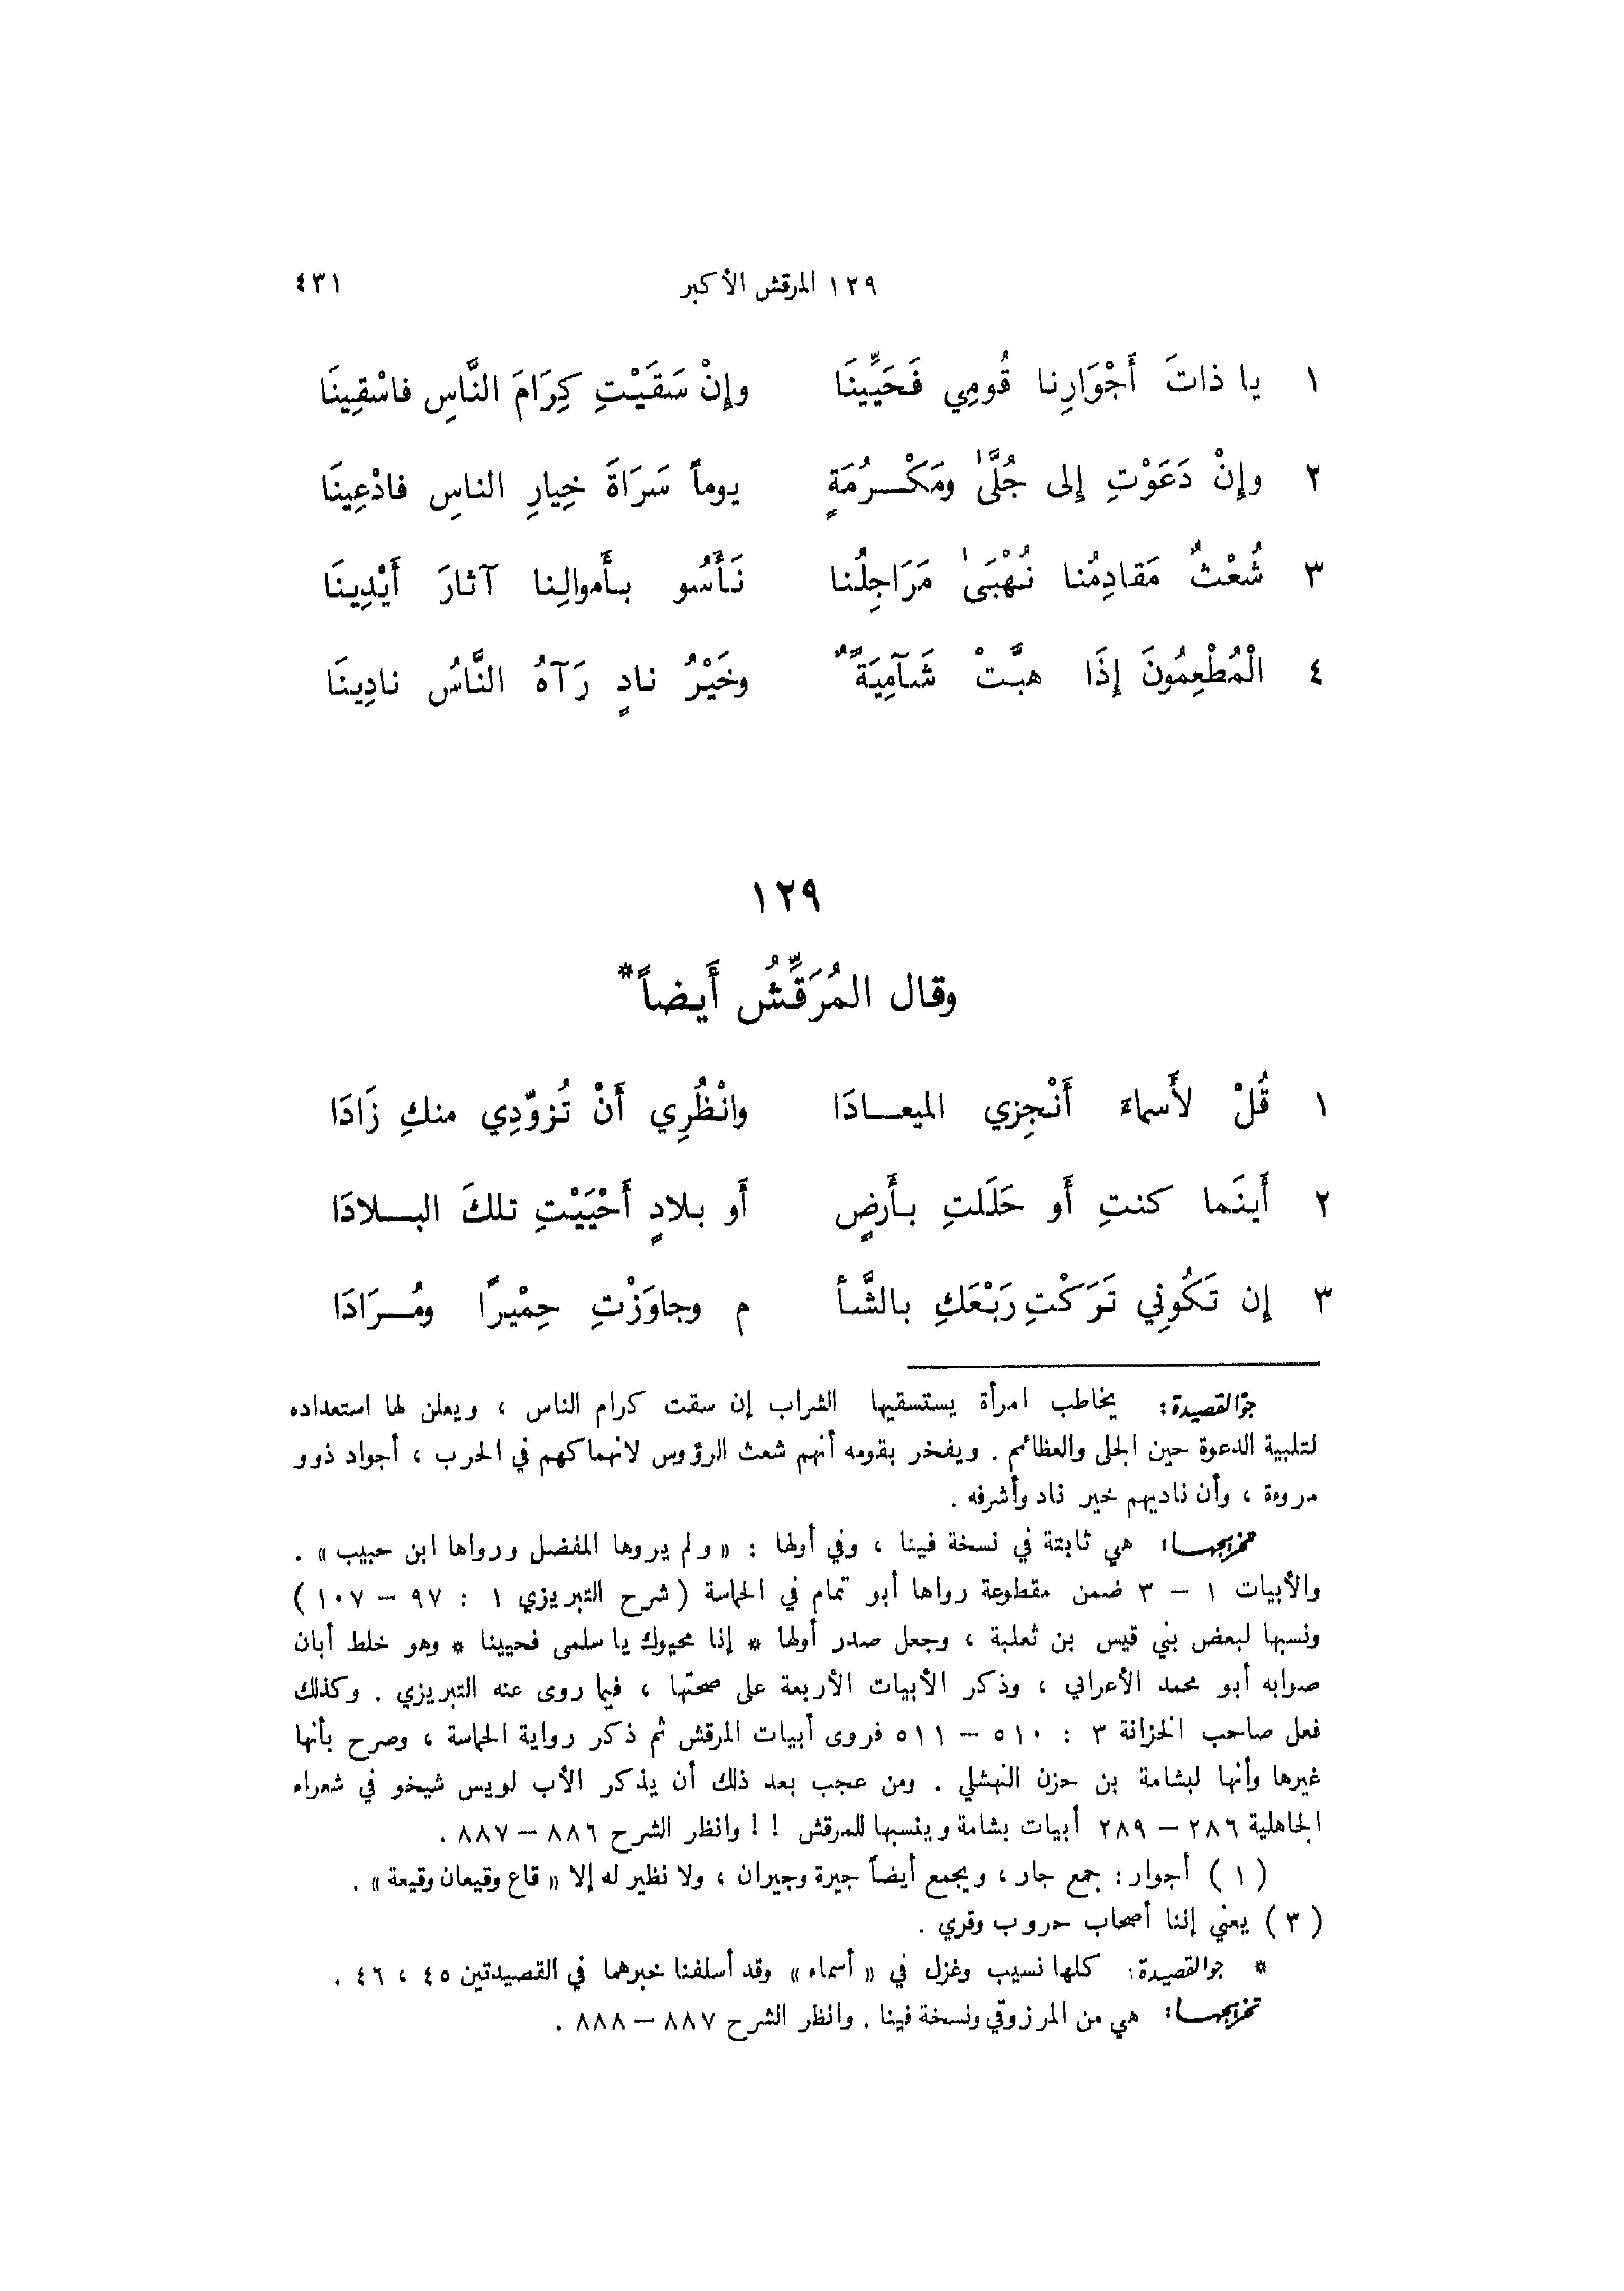 ١٢٩ المرقش الأكبر ٤٣١
١ يا ذاتَ أَجْوَارِنا قُومِي فَحَيِّينَا وإِنْ سَقَيْتِ كِرَامَ النَّاسِ فاسْقِينَا
٢ وإِنْ دَعَوْتِ إِلى جُلَّىٰ ومَكْرُمَةٍ يوماً سَرَاةَ خِيارِ الناسِ فادْعِينَا
٣ شُعْثٌ مَقادِمُنا نُهْبَىٰ مَرَاجِلُنا نَأْسُو بأَموالِنا آثارَ أَيْدِينَا
٤ الْمُطْعِمُونَ إِذَا هبَّتْ شَآمِيَةٌ وخَيْرُ نادٍ رَآهُ النَّاسُ نادِينَا
١٢٩
وقال المُرَقِّشُ أَيضاً*
١ قُلْ لأَسماءَ أَنْجِزي الميعادَا وانْظُرِي أَنْ تُزوِّدِي منكِ زَادَا
٢ أَينَما كنتِ أَو حَلَلتِ بأَرضٍ أَو بلادٍ أَحْيَيْتِ تلكَ البلادَا
٣ إِن تَكُونِي تَرَكْتِ رَبْعَكِ بالشَّأ م وجاوَزْتِ حِمْيرًا ومُرَادَا
جوّ القصيدة: يخاطب امرأة يستسقيها الشراب إن سقت كرام الناس ، ويعلن لها استعداده
لتلبية الدعوة حين الجلى والعظائم . ويفخر بقومه أنهم شعث الرؤوس لانهماكهم في الحرب ، أجواد ذوو
مروءة ، وأن ناديهم خير ناد وأشرفه .
تخريجها: هي ثابتة في نسخة فينا ، وفي أولها : « ولم يروها المفضل ورواها ابن حبيب » .
والأبيات ١ – ٣ ضمن مقطوعة رواها أبو تمام في الحماسة ( شرح التبريزي ١ : ٩٧ – ١٠٧ )
ونسبها لبعض بني قيس بن ثعلبة ، وجعل صدر أولها * إنا محيوك يا سلمى فحيينا * وهو خلط أبان
صوابه أبو محمد الأعرابي ، وذكر الأبيات الأربعة على صحتها ، فيما روى عنه التبريزي . وكذلك
فعل صاحب الخزانة ٣ : ٥١٠ – ٥١١ فروى أبيات المرقش ثم ذكر رواية الحماسة ، وصرح بأنها
غيرها وأنها لبشامة بن حزن النهشلي . ومن عجب بعد ذلك أن يذكر الأب لويس شيخو في شعراء
الجاهلية ٢٨٦ – ٢٨٩ أبيات بشامة وينسبها للمرقش ! ! وانظر الشرح ٨٨٦ – ٨٨٧ .
( ١ ) أجوار : جمع جار ، ويجمع أيضاً جيرة وجيران ، ولا نظير له إلا « قاع وقيعان وقيعة » .
( ٣ ) يعني إننا أصحاب حروب وقرى .
* جو القصيدة: كلها نسيب وغزل في « أسماء » وقد أسلفنا خبرهما في القصيدتين ٤٥ ، ٤٦ .
تخريجها: هي من المرزوقي ونسخة فينا . وانظر الشرح ٨٨٧ – ٨٨٨ .